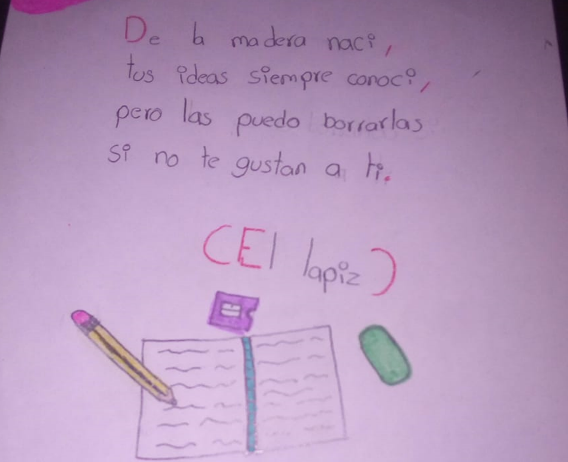 De la madera naci,
tus ideas siempre conoci,
pero las puedo borrarlas
si no te gustan a ti.
(El lapiz)